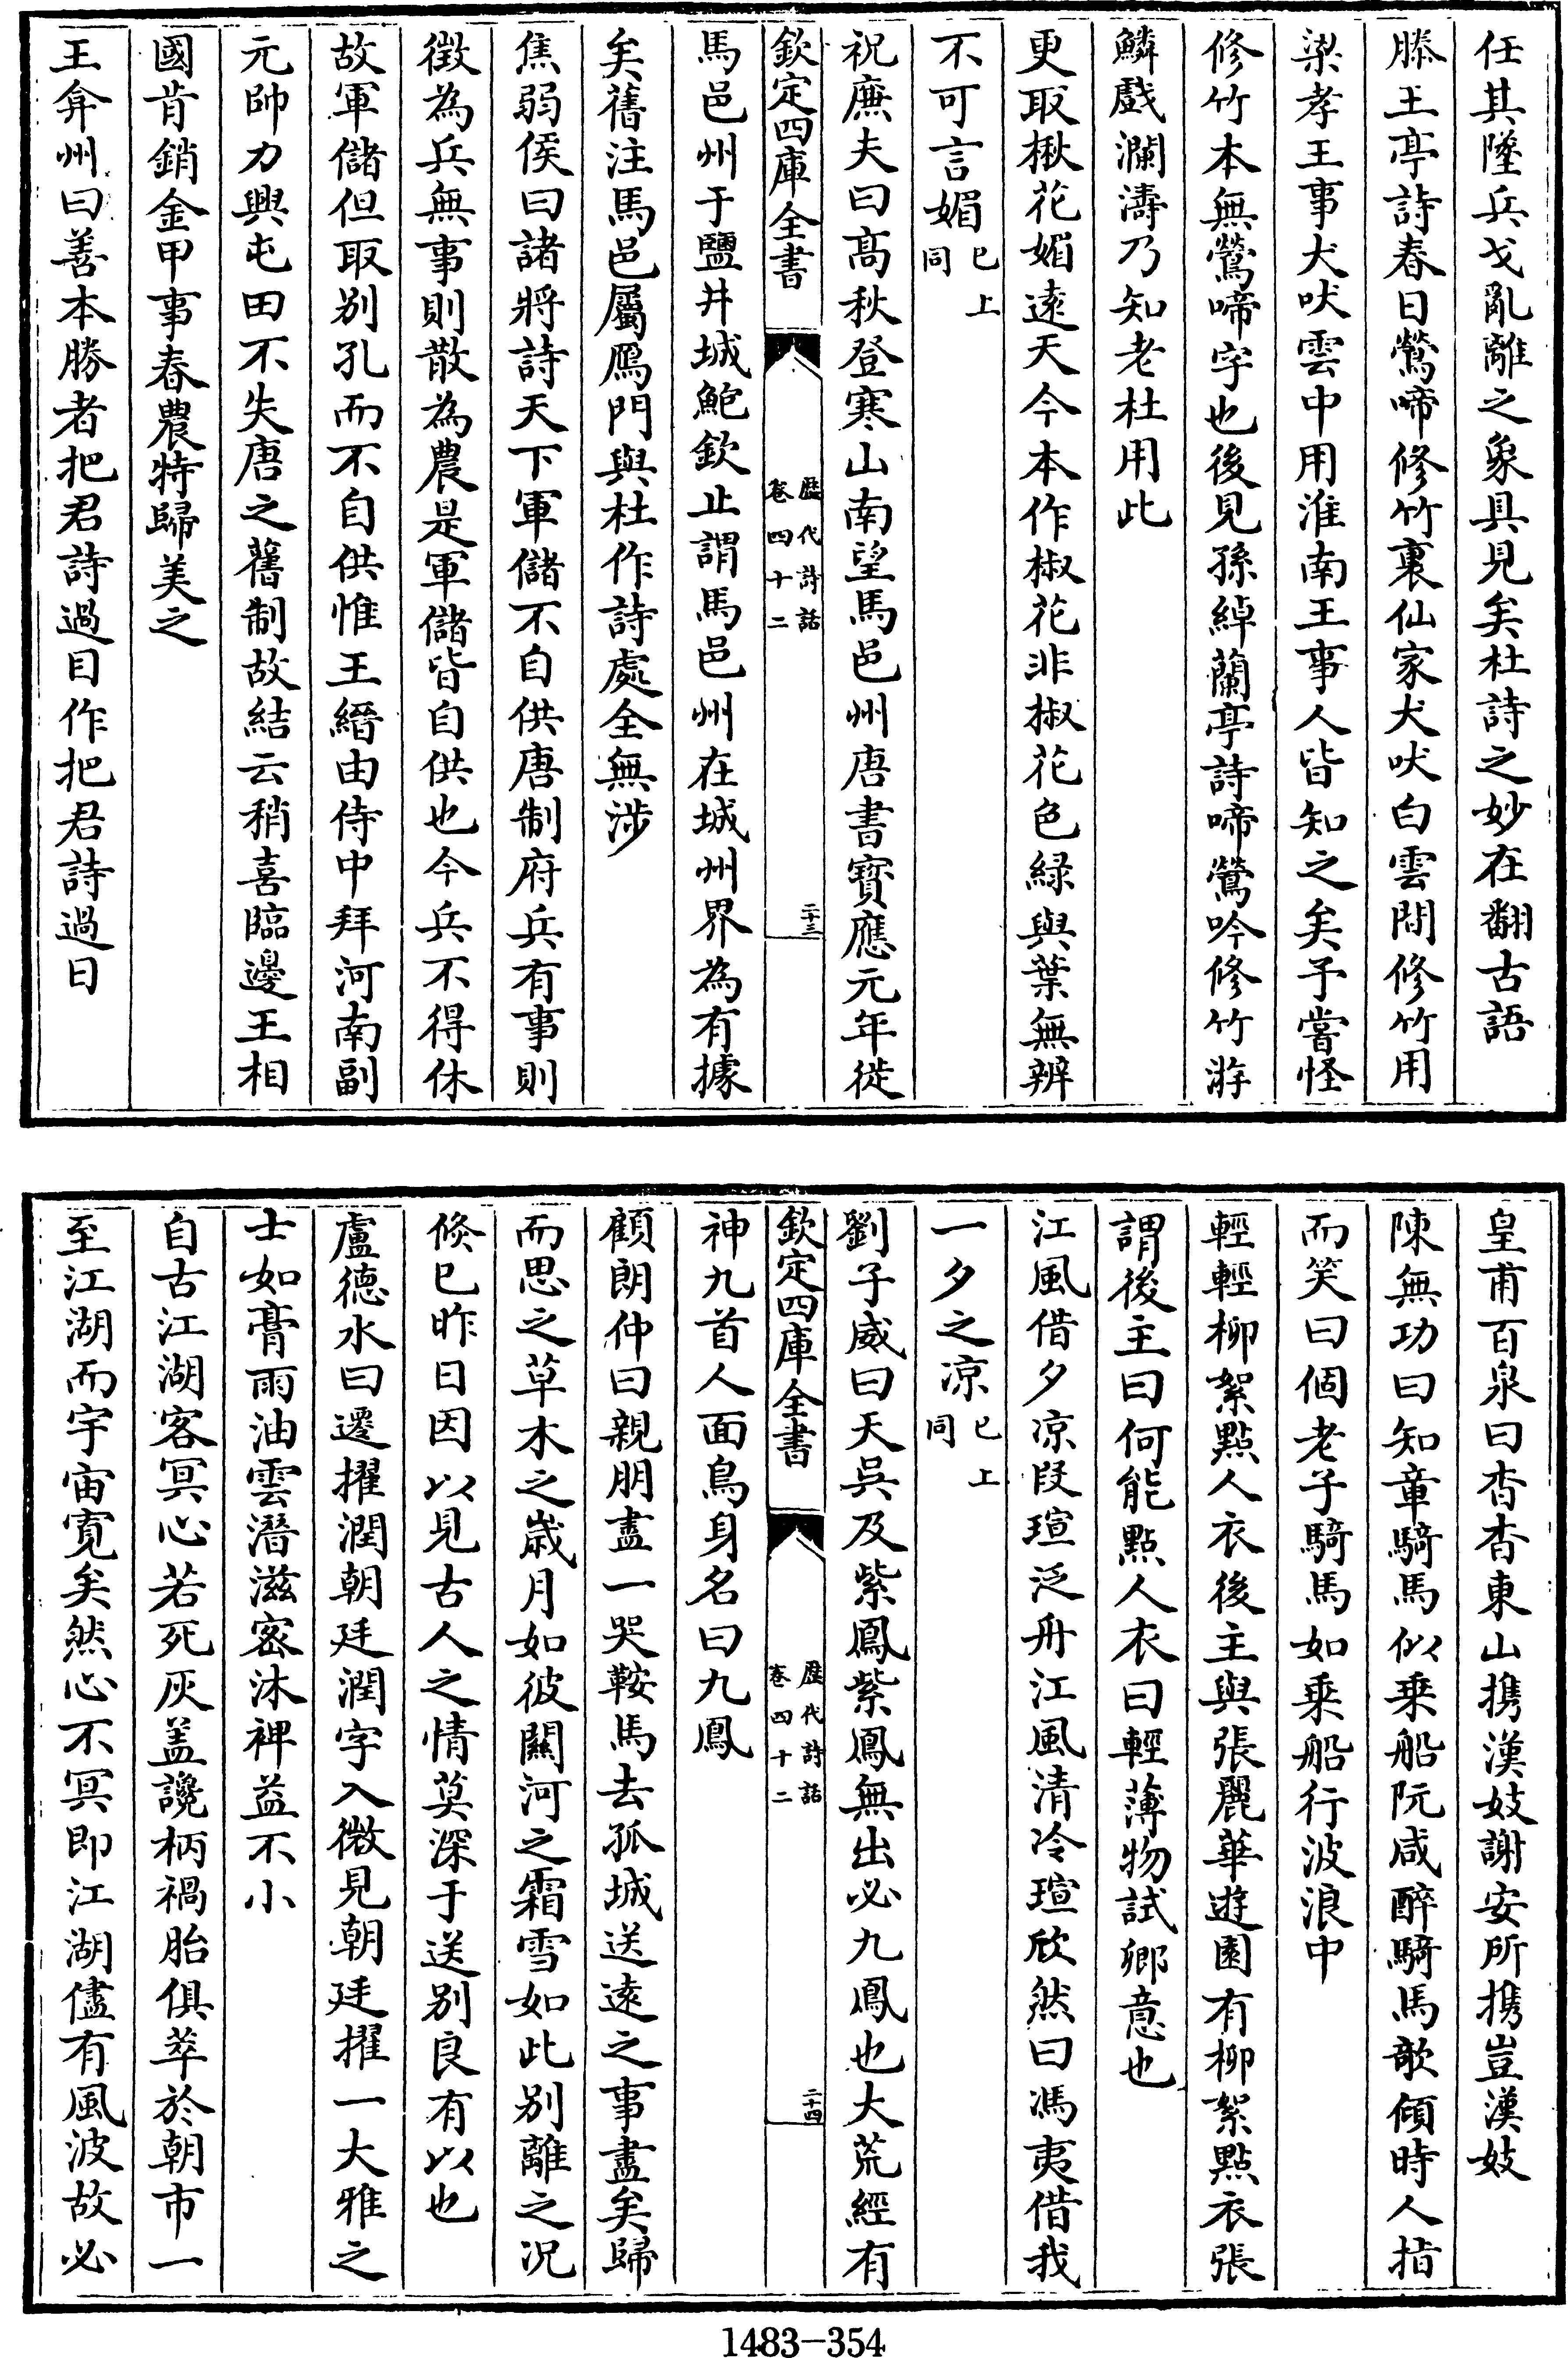 任其墜兵戈亂離之象具見矣杜詩之妙在翻古語
滕王亭詩春日鶯啼修竹裏仙家犬吠白雲間修竹用
梁孝王事犬吠雲中用淮南王事人皆知之矣予嘗怪
修竹本無鶯啼字也後見孫綽蘭亭詩啼鶯吟修竹游
鱗戲瀾濤乃知老杜用此
更取楸花媚遠天今本作椒花非椒花色緑與葉無辨
不可言媚已上同
祝廡夫曰高秋登寒山南望馬邑州唐書寳應元年徙
欽定四庫全書
歴代詩話
卷四十二
二十三
馬邑州于鹽井城鮑欽止謂馬邑州在城州界為有據
矣舊注馬邑屬鴈門與杜作詩處全無涉
焦弱侯曰諸將詩天下軍儲不自供唐制府兵有事則
徴為兵無事則散為農是軍儲皆自供也今兵不得休
故軍儲但取别孔而不自供惟王縉由侍中拜河南副
元帥力興屯田不失唐之舊制故結云稍喜臨邊王相
國肯銷金甲事春農特歸美之
王弇州曰善本勝者把君詩過目作把君詩過日
皇甫百泉曰杳杳東山携漢妓謝安所携豈漢妓
陳無功曰知章騎馬似乗船阮咸醉騎馬欹傾時人指
而笑曰個老子騎馬如乗船行波浪中
輕輕柳絮點人衣後主與張麗華遊園有柳絮點衣張
謂後主曰何能點人衣曰輕薄物試卿意也
江風借夕凉段瑄泛舟江風清冷瑄欣然曰馮夷借我
一夕之凉已上同
劉子威曰天吳及紫鳳紫鳳無出必九鳳也大荒經有
欽定四庫全書
歴代詩話
卷四十二
二十四
神九首人面鳥身名曰九鳳
顧朗仲曰親朋盡一哭鞍馬去孤城送遠之事盡矣歸
而思之草木之嵗月如彼關河之霜雪如此别離之况
倐已昨日因以見古人之情莫深于送别良有以也
盧德水曰遷擢潤朝廷潤字入微見朝廷擢一大雅之
士如膏雨油雲潛滋宻沐裨益不小
自古江湖客冥心若死灰盖讒柄禍胎俱萃於朝市一
至江湖而宇宙寛矣然心不冥即江湖儘有風波故必
1483-354